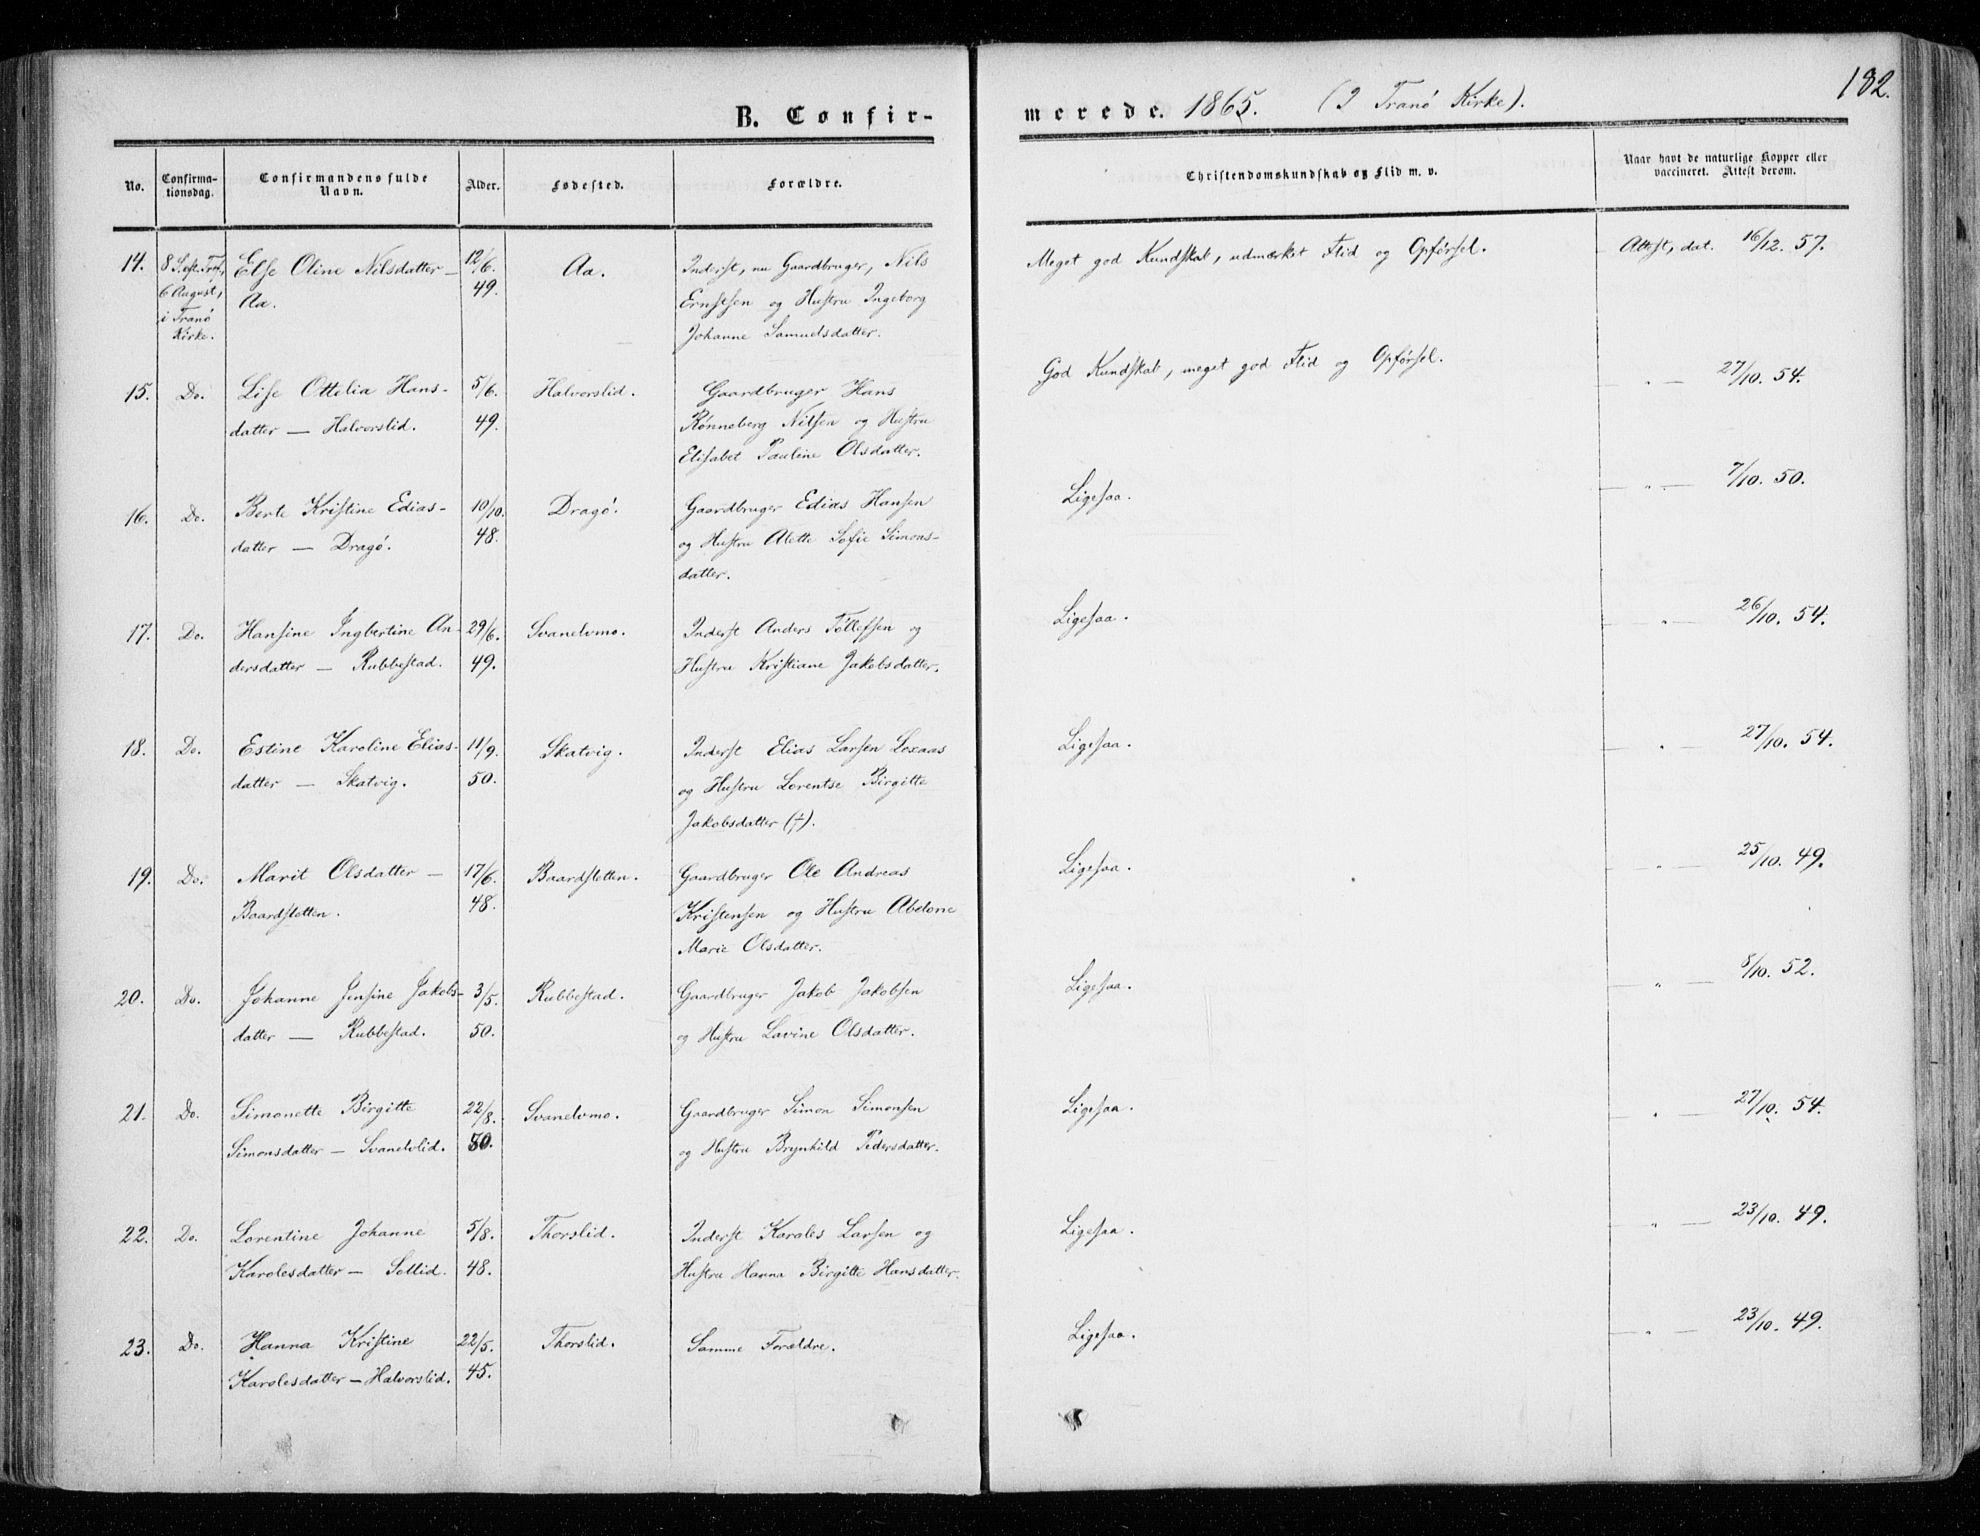 182.
B. Confir-
merede. 1865. (I Tranö Kirke).
No.
Confirma-
tionsdag.
Confirmandens fulde
Navn.
Alder.
Fødested.
Forældre.
Christendomskundskab og Flid m. v.
Naar havt de naturlige Kopper eller
vaccineret. Attest derom.
14. 8 S. eft. Tref., Else Oline Nilsdatter — 12/6. Aa. Inderst, nu Gaardbruger, Nils Meget god Kundskab, udmærket Flid og Opførsel. Attest, dat. 16/12. 57.
6 August, Aa. 49. Ernstsen og Hustru Ingeborg
i Tranö Johanne Samuelsdatter.
Kirke.
15. Do. Lise Ottelia Hans- 5/6. Halvorslid. Gaardbruger Hans God Kundskab, meget god Flid og Opførsel. — " — 27/10. 54.
datter — Halvorslid. 49. Rönneberg Nilsen og Hustru
Elisabet Pauline Olsdatter.
16. Do. Berte Kristine Edias- 10/10. Dragö. Gaardbruger Edias Hansen Ligesaa. — " — 7/10. 50.
datter — Dragö. 48. og Hustru Alette Sofie Simons-
datter.
17. Do. Hansine Ingbertine An- 29/6. Svanelvmo. Inderst Anders Töllefsen og Ligesaa. " — 26/10. 54.
dersdatter — Rubbestad. 49. Hustru Kristiane Jakobsdatter.
18. Do. Estine Karoline Elias- 11/9. Skatvig. Inderst Elias Larsen Loxaas Ligesaa. " — 27/10. 54.
datter — Skatvig. 50. og Hustru Lorentse Birgitte
Jakobsdatter (†).
19. Do. Marit Olsdatter — 17/6. Baardsletten. Gaardbruger Ole Andreas Ligesaa. " — 25/10. 49.
Baardsletten. 48. Kristensen og Hustru Abelone
Marie Olsdatter.
20. Do. Johanne Jensine Jakobs- 3/5. Rubbestad. Gaardbruger Jakob Jakobsen Ligesaa. — " — 8/10. 52.
datter — Rubbestad. 50. og Hustru Lavine Olsdatter.
21. Do. Simonette Birgitte 22/8. Svanelvmo. Gaardbruger Simon Simonsen Ligesaa. " — 27/10. 54.
Simonsdatter — Svanelvlid. 50. og Hustru Brynhild Pedersdatter.
22. Do. Lorentine Johanne 5/8. Thorslid. Inderst Karoles Larsen og Ligesaa. — " — 23/10. 49.
Karolesdatter — Sollid. 48. Hustru Hanna Birgitte Hansdatter.
23. Do. Hanna Kristine 22/5. Thorslid. Samme Forældre. Ligesaa. — " — 23/10. 49.
Karolesdatter — Halvorslid. 45.